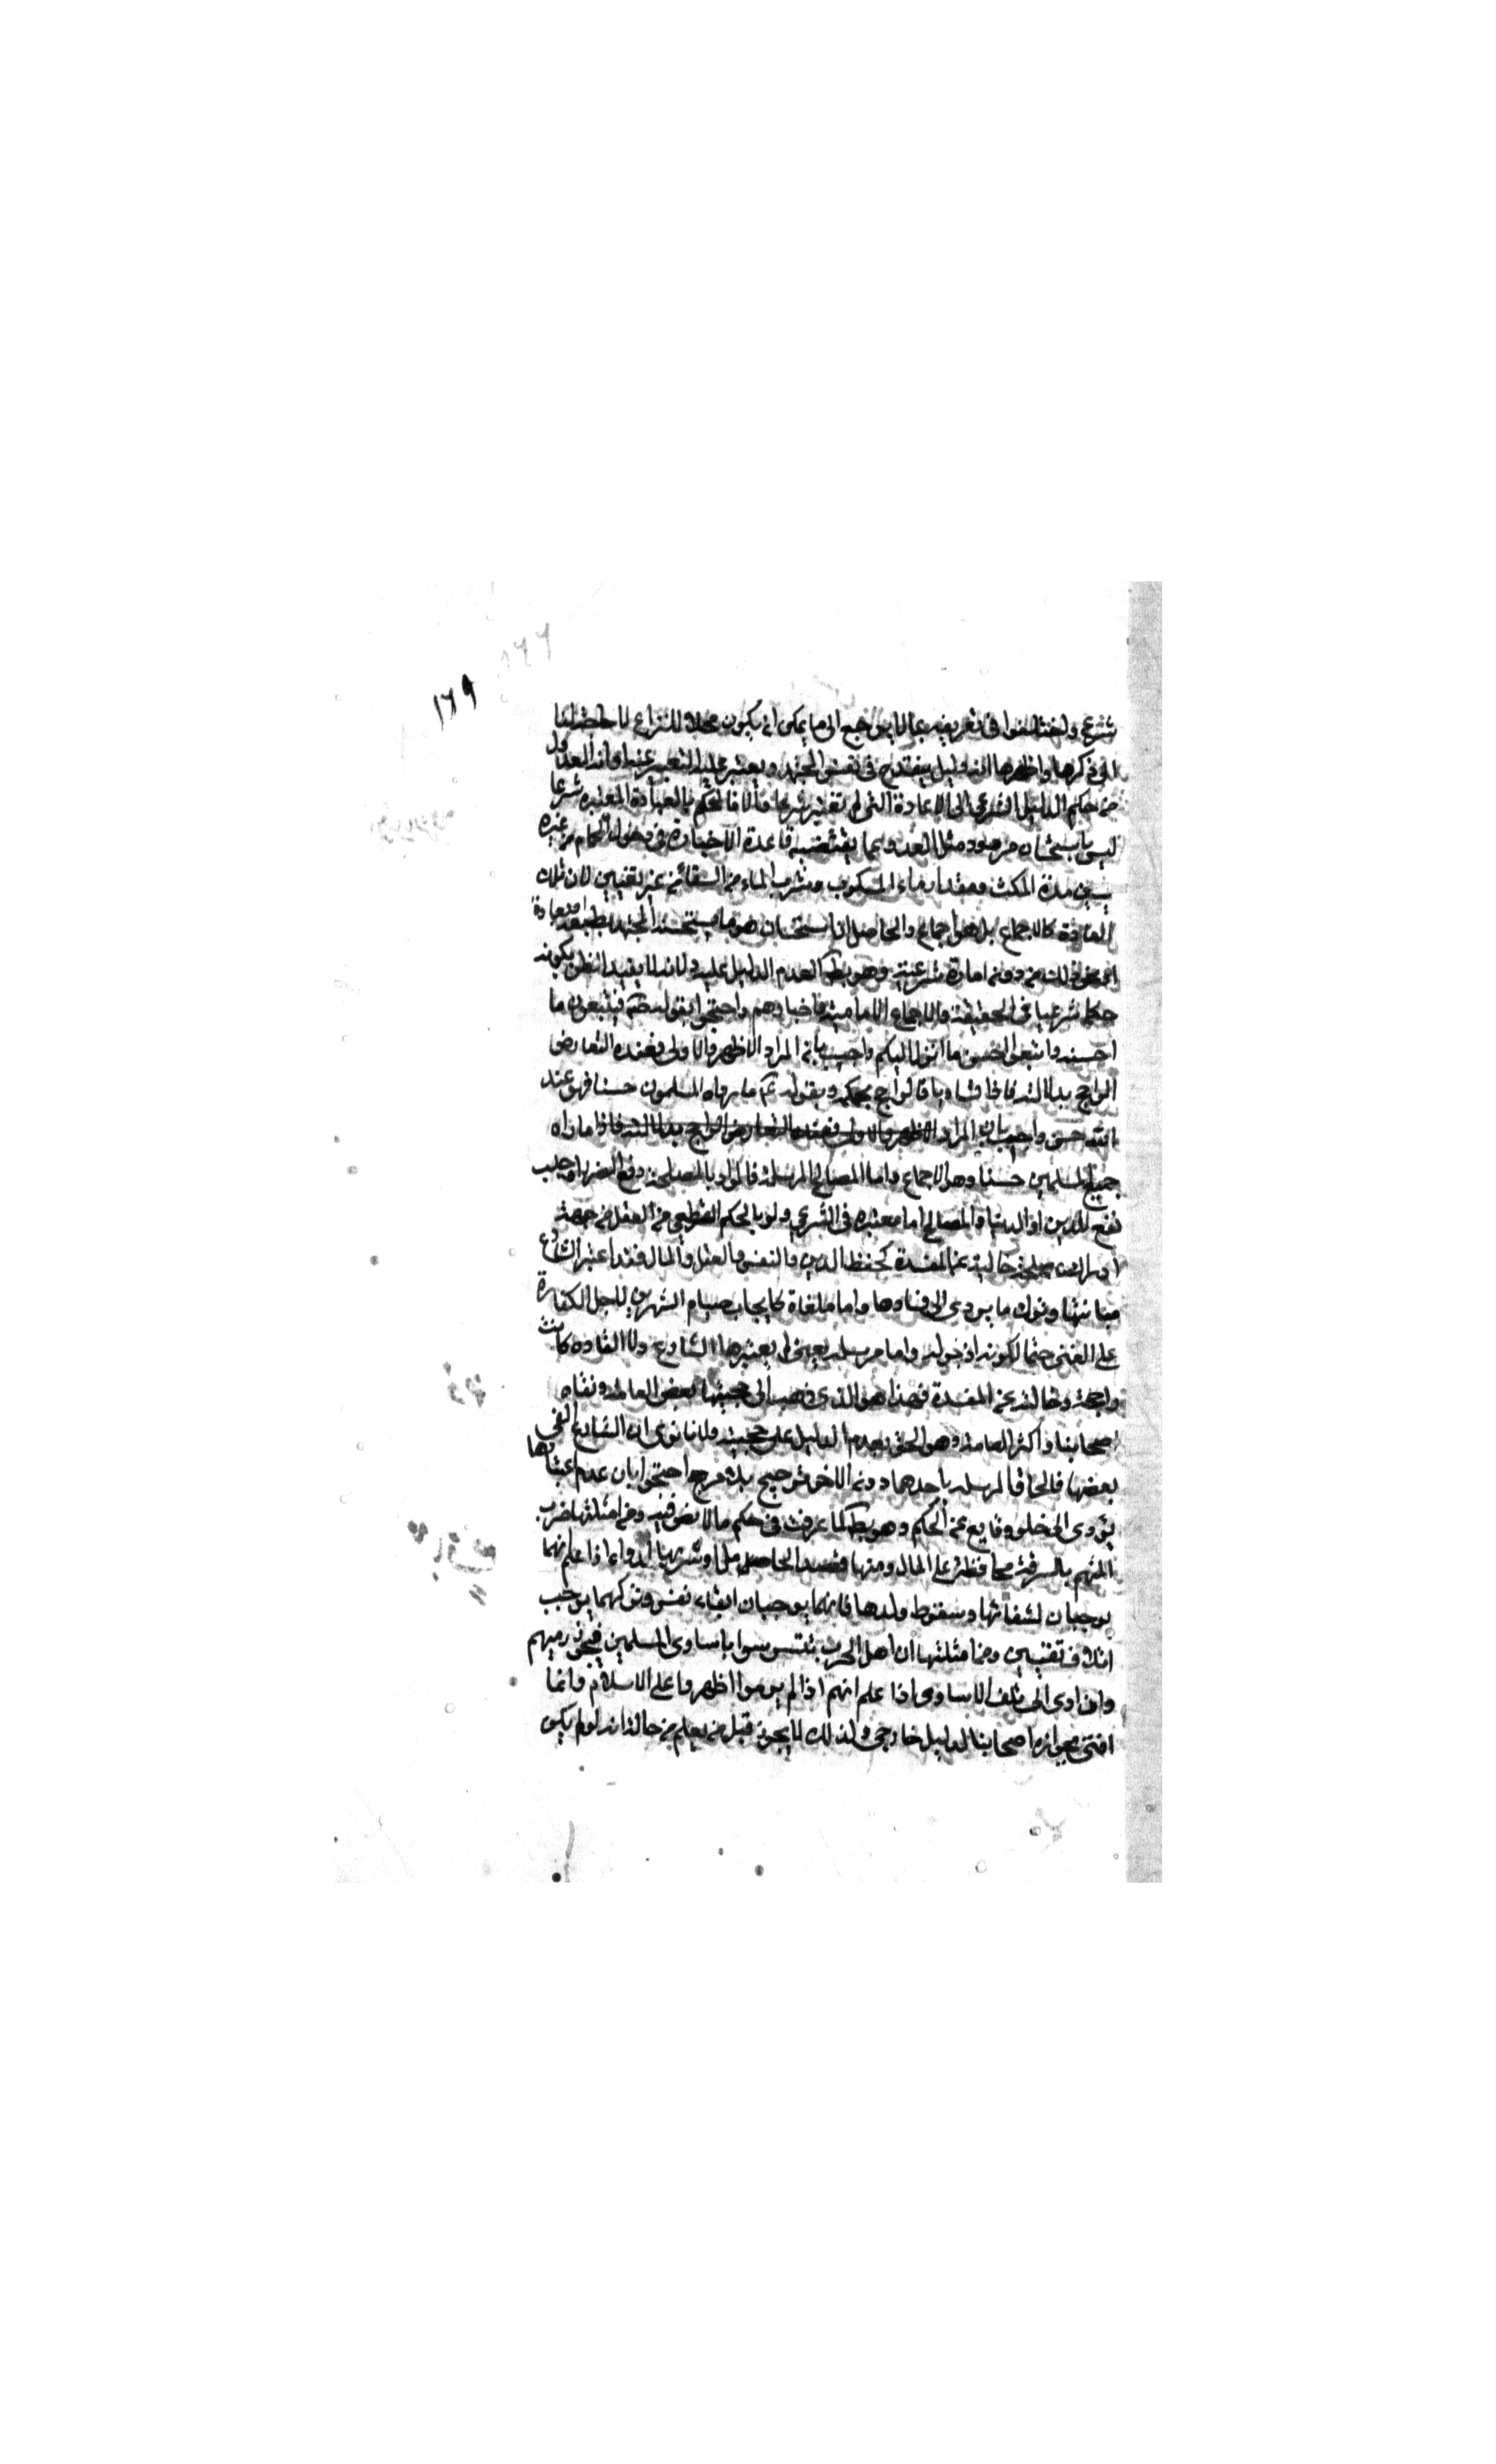 ١٦٩
شرعي واختلفوا في تعريفه بما لا يرجع الى ما يمكن ان يكون محلا للنزاع
ذكرها واظهرها انه دليل ينقدح في نفس المجتهد ويعسر عليه التعبير عنه او انه العدول
من حكم الدليل الشرعي الى العادة التي لم تعتبر شرعا والا فالحكم بالعبادة المعتبره شرعا
ليس باستحسان مردود مثل العدول عما يقتضيه قاعدة الاجاره في دخول الحمام من غير
تعيين مدة المكث ومقدار ماء المسكوب وشرب الماء من السقائين غير تعيين لان تلك
العادة كالاجماع بل هو اجماع والحاصل ان الاستحسان هو ما يستحسنه المجتهد بطبعه او بعادة
او نحو ذلك من دون امارة شرعية وهو بط لعدم الدليل عليه ولانه لا يفيد الظن بكونه
حكما شرعيا في الحقيقة ولاجماع الامامية واخبارهم واحتجوا بقوله تعالى فيتبعون ما
احسنه واتبعوا احسن ما انزل اليكم واجيب بان المراد الاظهر والاولى وعند التعارض
الراجح بدلالته فاذا تساويا فالراجح بحكمه وبقوله ع م ما راه المسلمون حسنا فهو عند
الله حسن واجيب بان المراد الاظهر والاولى فعند التعارض الراجح بدلالته فاذا ما راه
جميع المسلمين حسنا وهو الاجماع واما المصالح المرسلة فالمراد بالمصلحة دفع الضرر او جلب
نفع للدين او الدنيا والمصالح اما معتبره في الشرع ولو بالحكم القطعي من العقل من جهة
ادراك مصلحة خالية عن المفسدة كحفظ الدين والنفس والعقل والمال فقد اعتبر الشارع
صيانتها وترك ما يؤدي الى فسادها واما ملغاة كايجاب صيام الشهرين لاجل الكفارة
على الغني حتما لكونه ازجر له واما مرسلة يعني لم يعتبرها الشارع ولا الغاه وكانت
راجحة وخالية عن المفسدة فهذا هو الذي ذهب الى حجيتها بعض العامة ونفاه
اصحابنا واكثر العامة وهو الحق لعدم الدليل على حجيته ولانا نرى ان الشارع الغى
بعضها فالحاق المرسلة باحدهما دون الاخر ترجيح بلا مرجح احتجوا بان عدم اعتبارها
يؤدي الى خلو وقايع عن الحكم وهو بط كما عرفت في حكم ما لا نص فيه ومن امثلتها ضرب
المتهم بالسرقة محافظة على المال ومنها فصد الحامل وشربها الدواء اذا علم انهما
يوجبان لشفائها وسقوط ولدها فانهما يوجبان ابقاء نفس وتركهما يوجب
اتلاف نفسين ومن امثلتها ان اهل الحرب تترسوا باسارى المسلمين فيجوز رميهم
وان ادى الى تلف الاسارى اذا علم انهم اذا لم يرموا اظهروا على الاسلام وانما
افتى بجوازه اصحابنا لدليل خارجي ولذلك لا يجوز قتل من يعلم من حاله انه لو لم يكن